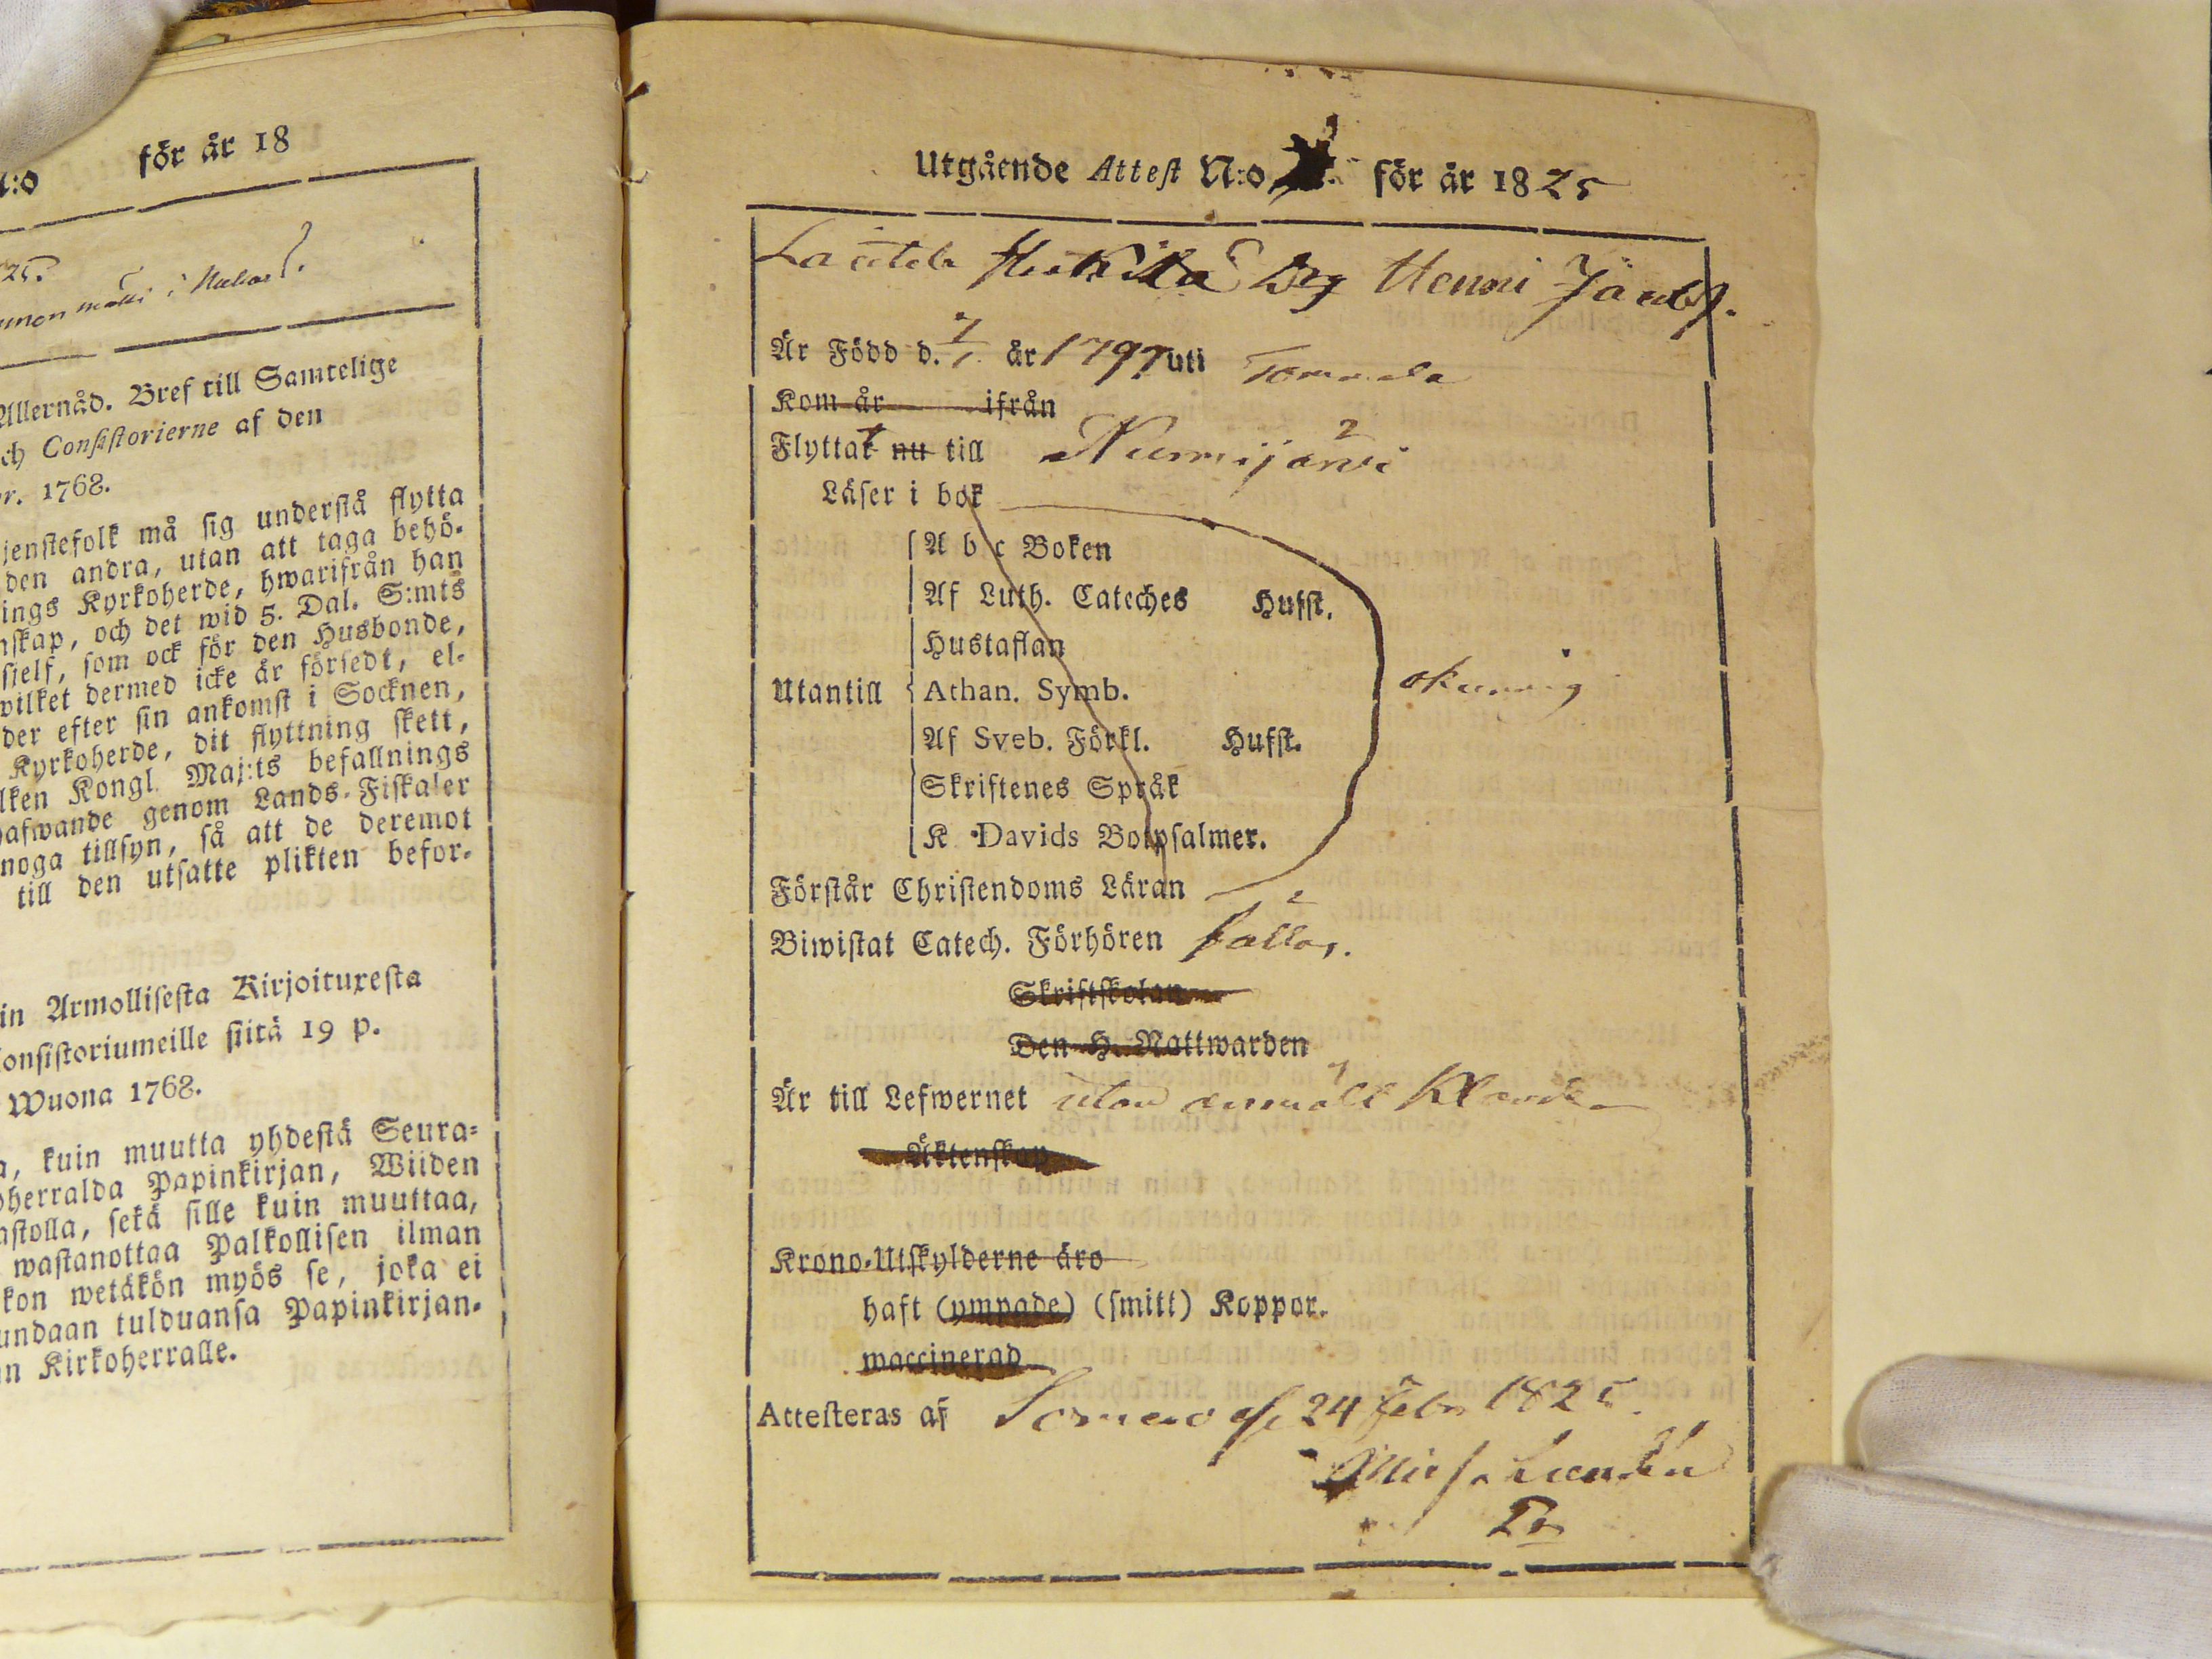 :o för år 18
25.
i
Allernåd. Bref till Samtelige
ch Consistorierne af den
r. 1768.
jenstefolk må sig understå flytta
den andra, utan att taga behö-
ings Kyrkoherde, hwarifrån han
nskap, och det wid 5. Dal. S:mts
sielf, som ock för den Husbonde,
wilket dermed icke är försedt, el-
der efter sin ankomst i Socknen,
Kyrkoherde, dit flyttning skett,
lken Kongl. Maj:ts befallnings
hafwande genom Lands-Fiskaler
noga tillsyn, så att de deremot
till den utsatte plikten befor-
in Armollisesta Kirjoituxesta
onsistoriumeille siitä 19 p.
Wuona 1768.
a, kuin muutta yhdestä Seura-
oherralda Papinkirjan, Wiiden
astolla, sekä sille kuin muuttaa,
wastanottaa Palkollisen ilman
kon wetäkön myös se, joka ei
undaan tulduansa Papinkirjan-
n Kirkoherralle.
Utgående Attest N:o för år 1825
Henni
Är Född d. 7/1. år 1797 uti
Kom år ifrån
Flyttat nu till Nurmijärvi
Läser i bok
A b c Boken
Af Luth. Cateches Hufst.
Hustaflan
Utantill Athan. Symb.
Af Sveb. Förkl. Hufst.
Skriftenes Språk
K. Davids Botpsalmer.
okunnig
Förstår Christendoms Läran
Biwistat Catech. Förhören sällan.
Skriftskolan
Den H. Nattwarden
Är till Lefwernet utan anmält klander
Äktenskap
Krono-Utskylderne äro
haft (ympade) (smitt) Koppor.
waccinerad
Attesteras af Somero d. 24 Febr 1825